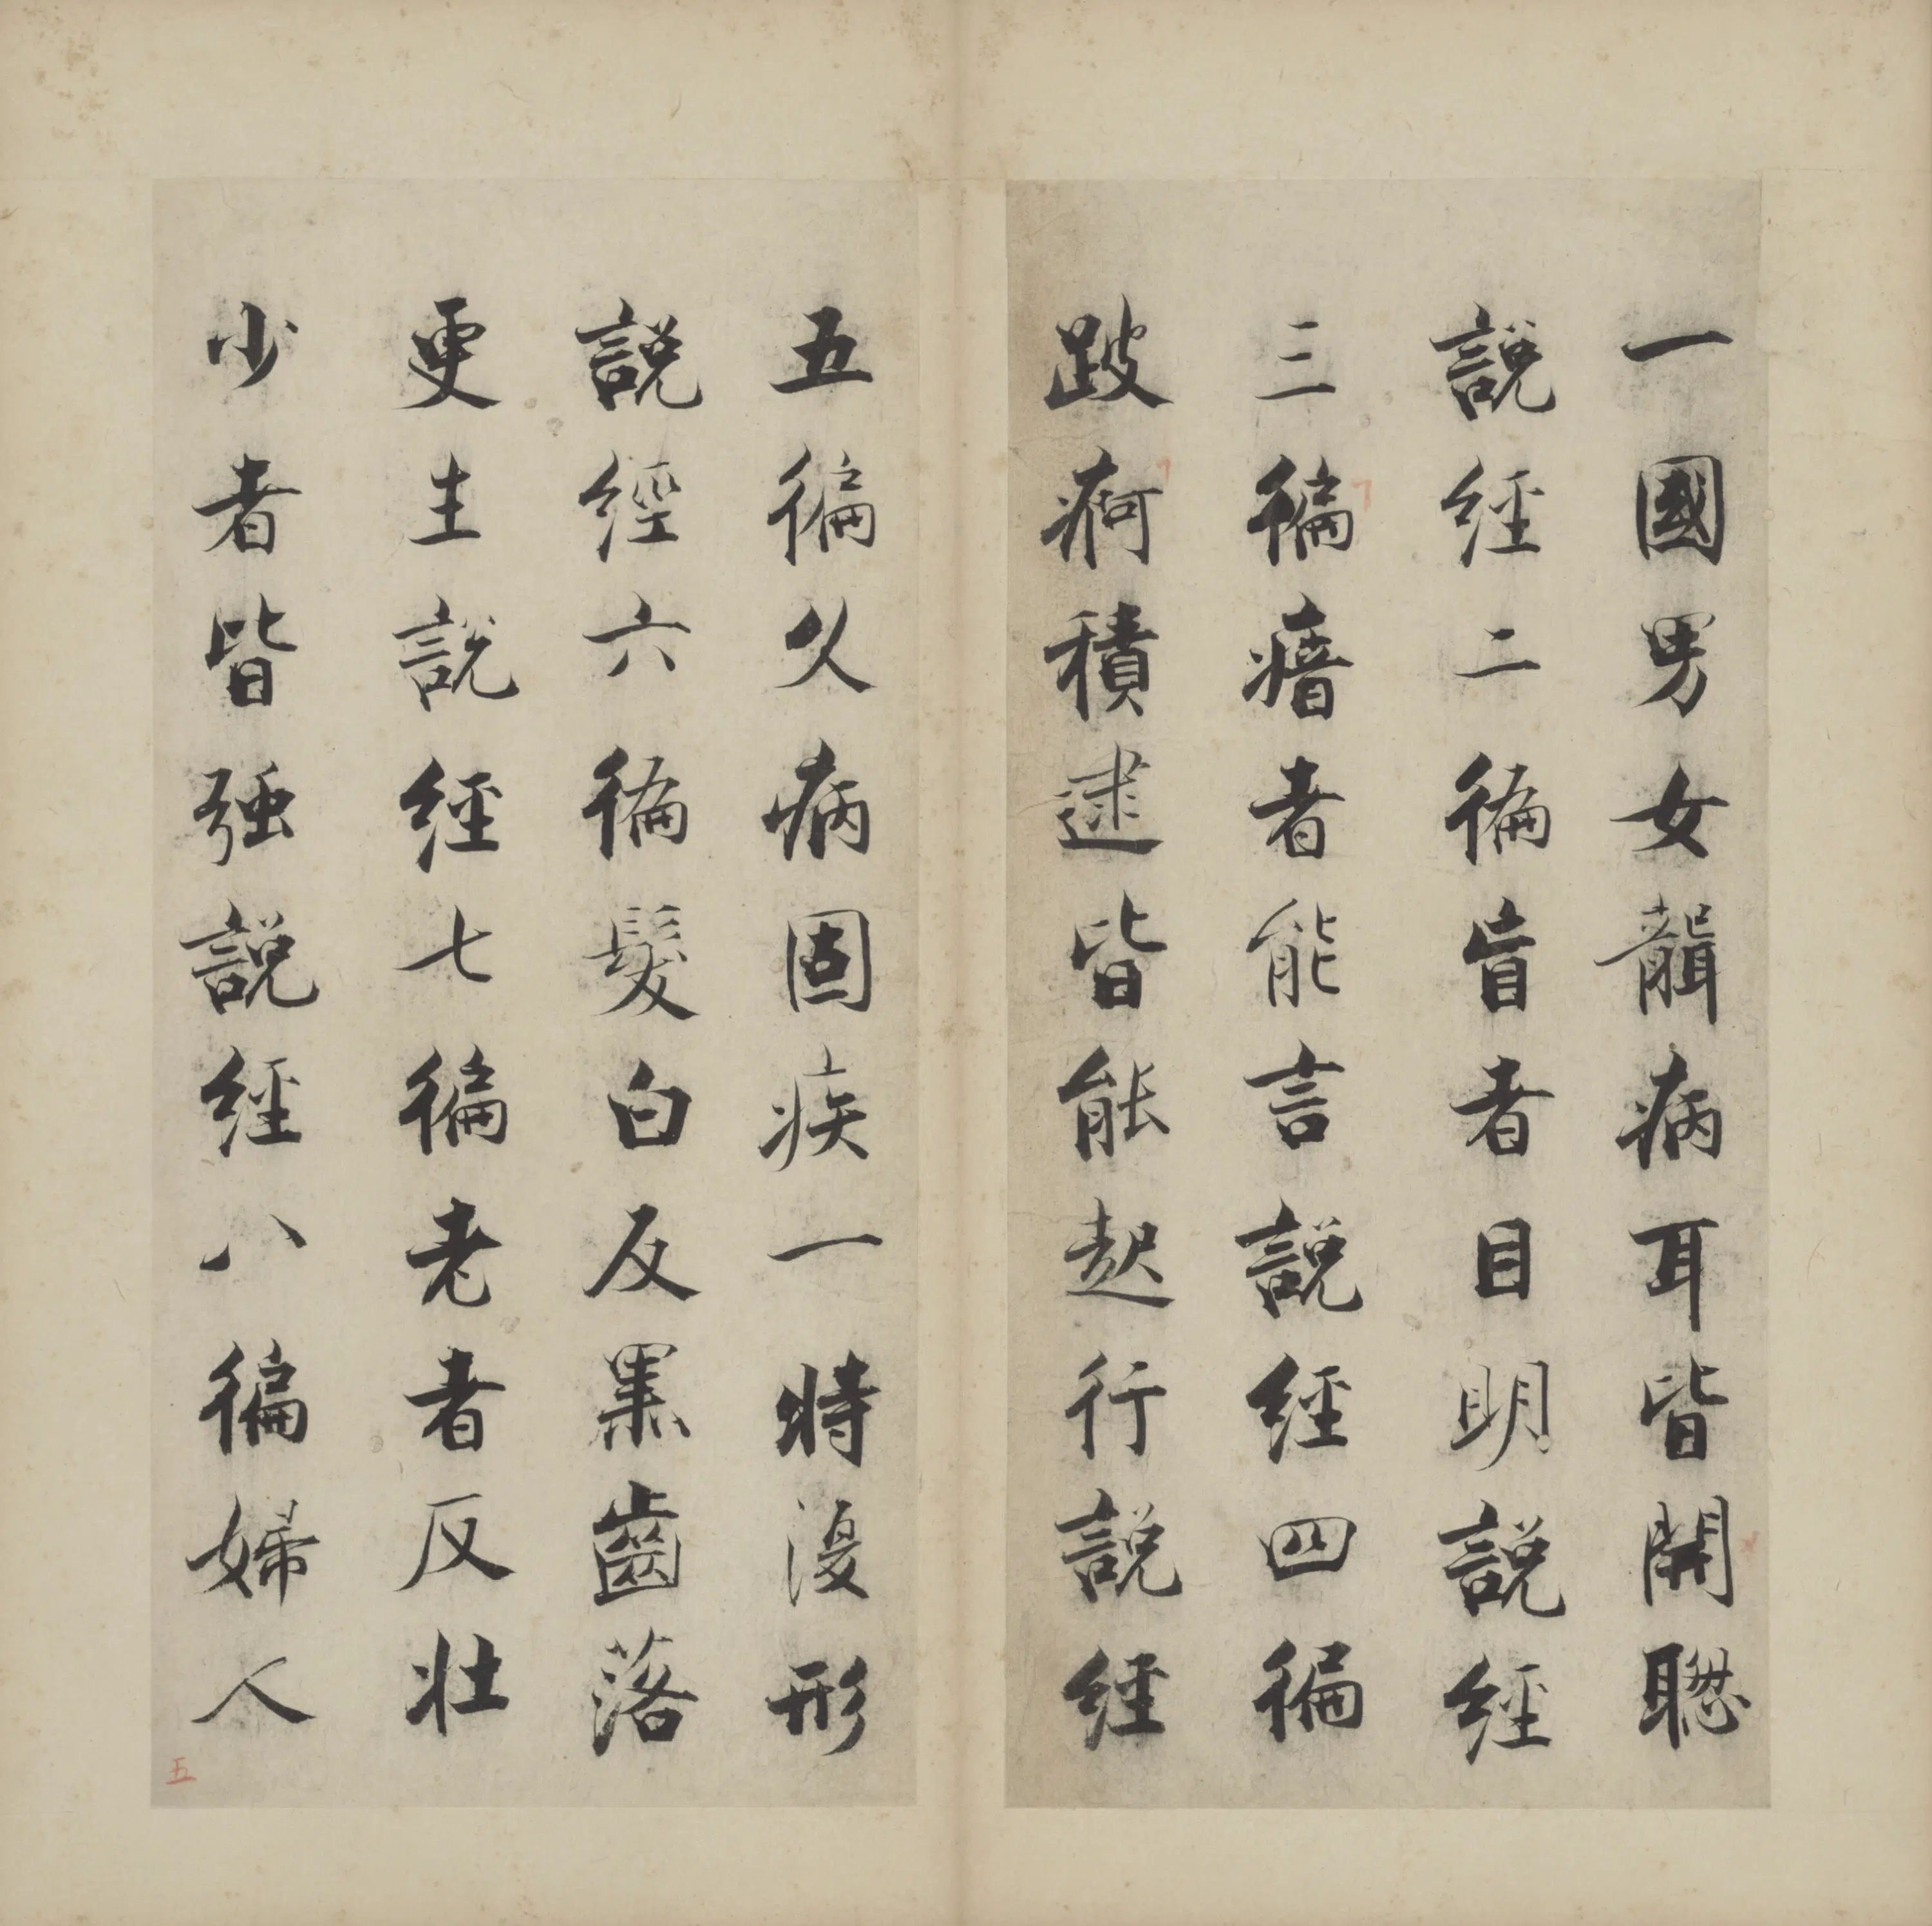 一國男女聾病耳皆開聦
說經二徧盲者目明說經
三徧瘖者能言說經四徧
跛痾積逮皆能起行說經
五徧久病固疾一時復形
說經六徧髮白反黑齒落
更生說經七徧老者反壯
少者皆强說經八徧婦人
五